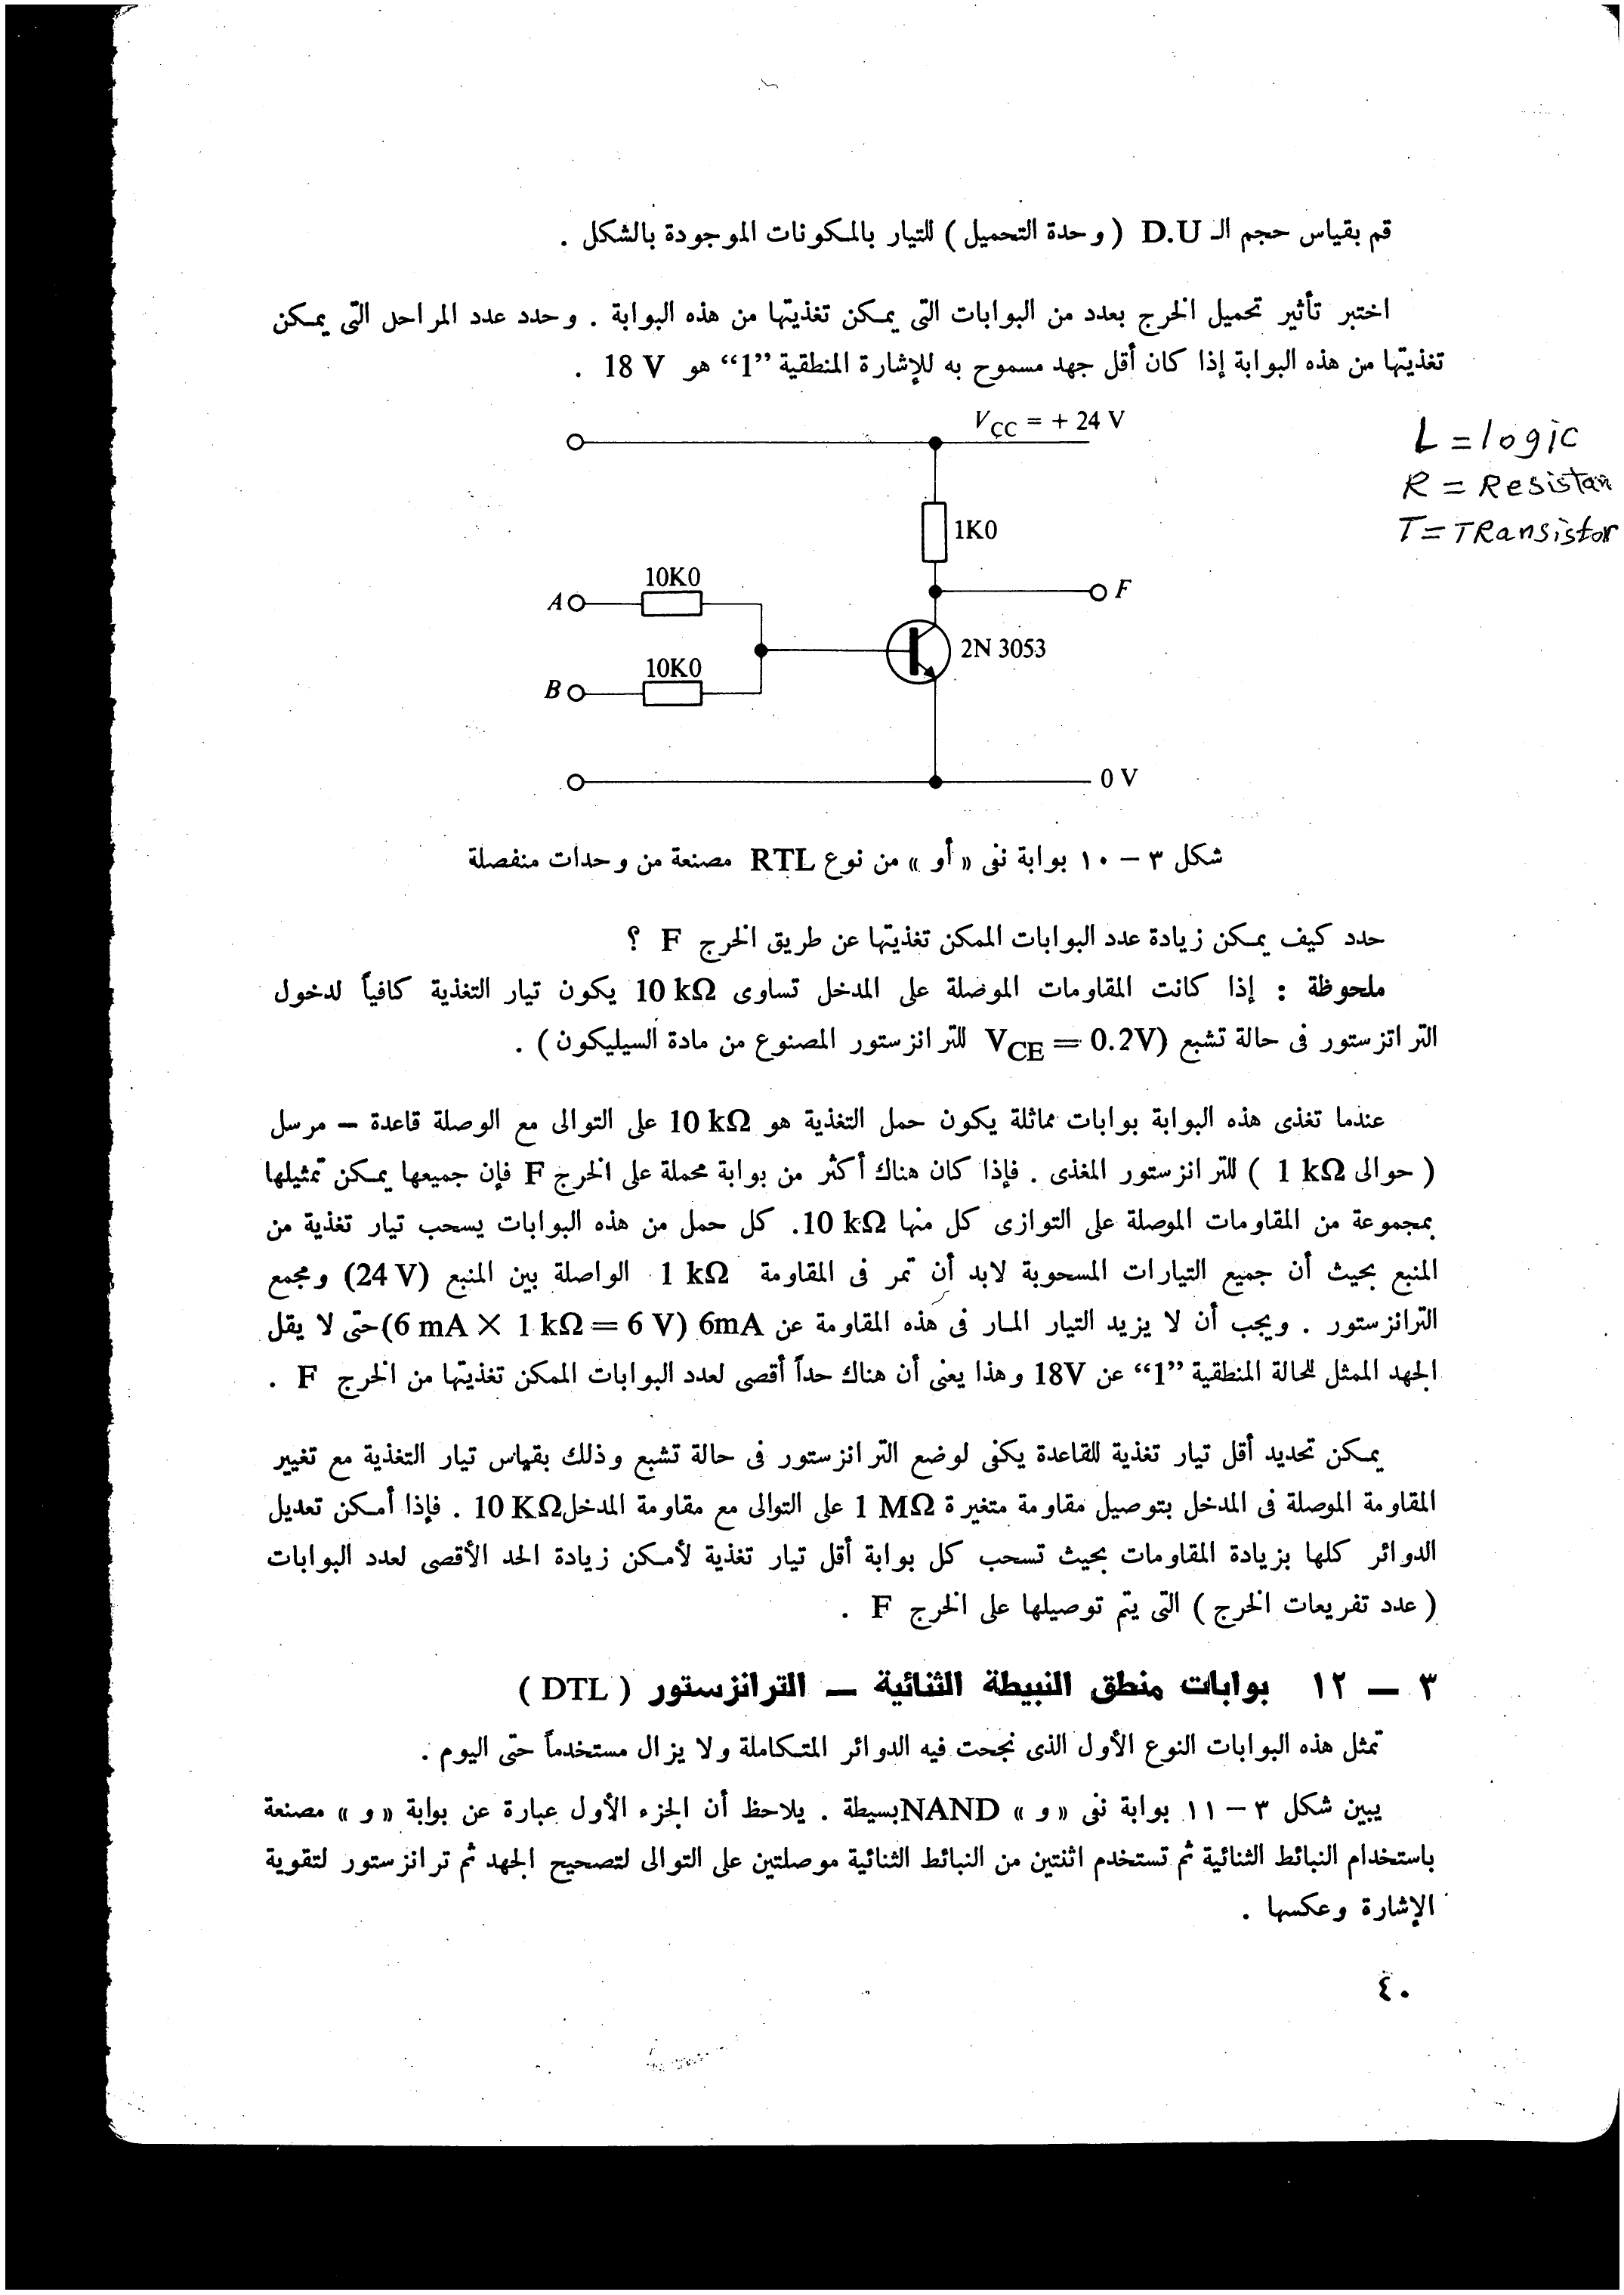 قم بقياس حجم الـ D.U ( وحدة التحميل ) للتيار بالمكونات الموجودة بالشكل .
اختبر تأثير تحميل الخرج بعدد من البوابات التى يمكن تغذيتها من هذه البوابة . وحدد عدد المراحل التى يمكن
تغذيتها من هذه البوابة إذا كان أقل جهد مسموح به للإشارة المنطقية “1” هو 18 V .
V_CC = + 24 V
L = logic
R = Resistan
T = TRansistor
1K0
10K0
A
F
2N 3053
10K0
B
0 V
شكل ٣ – ١٠ بوابة نفى « أو » من نوع RTL مصنعة من وحدات منفصلة
حدد كيف يمكن زيادة عدد البوابات الممكن تغذيتها عن طريق الخرج F ؟
ملحوظة : إذا كانت المقاومات الموصلة على المدخل تساوى 10 kΩ يكون تيار التغذية كافياً لدخول
الترانزستور فى حالة تشبع (V_CE = 0.2V للترانزستور المصنوع من مادة السيليكون ) .
عندما تغذى هذه البوابة بوابات مماثلة يكون حمل التغذية هو 10 kΩ على التوالى مع الوصلة قاعدة – مرسل
( حوالى 1 kΩ ) للترانزستور المغذى . فإذا كان هناك أكثر من بوابة محملة على الخرج F فإن جميعها يمكن تمثيلها
بمجموعة من المقاومات الموصلة على التوازى كل منها 10 kΩ. كل حمل من هذه البوابات يسحب تيار تغذية من
المنبع بحيث أن جميع التيارات المسحوبة لابد أن تمر فى المقاومة 1 kΩ الواصلة بين المنبع (24 V) ومجمع
الترانزستور . ويجب أن لا يزيد التيار المار فى هذه المقاومة عن 6mA (6 mA × 1 kΩ = 6 V) حتى لا يقل
الجهد الممثل للحالة المنطقية “1” عن 18V وهذا يعنى أن هناك حداً أقصى لعدد البوابات الممكن تغذيتها من الخرج F .
يمكن تحديد أقل تيار تغذية للقاعدة يكفى لوضع الترانزستور فى حالة تشبع وذلك بقياس تيار التغذية مع تغيير
المقاومة الموصلة فى المدخل بتوصيل مقاومة متغيرة 1 MΩ على التوالى مع مقاومة المدخل 10 KΩ . فإذا أمكن تعديل
الدوائر كلها بزيادة المقاومات بحيث تسحب كل بوابة أقل تيار تغذية لأمكن زيادة الحد الأقصى لعدد البوابات
( عدد تفريعات الخرج ) التى يتم توصيلها على الخرج F .
٣ – ١٢ بوابات منطق النبيطة الثنائية – الترانزستور ( DTL )
تمثل هذه البوابات النوع الأول الذى نجحت فيه الدوائر المتكاملة ولا يزال مستخدماً حتى اليوم .
يبين شكل ٣ – ١١ بوابة نفى « و » NAND بسيطة . يلاحظ أن الجزء الأول عبارة عن بوابة « و » مصنعة
باستخدام النبائط الثنائية ثم تستخدم اثنتين من النبائط الثنائية موصلتين على التوالى لتصحيح الجهد ثم ترانزستور لتقوية
الإشارة وعكسها .
٤٠